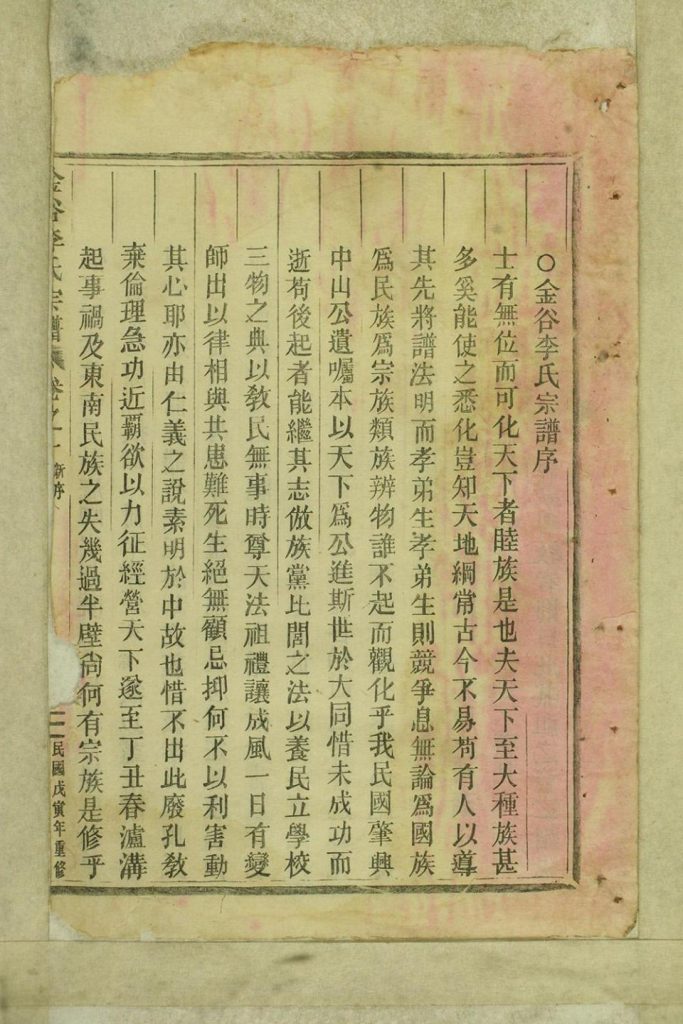 ○金谷李氏宗譜序
士有無位而可化天下者睦族是也夫天下至大種族甚
多奚能使之悉化豈知天地綱常古今不易苟有人以導
其先將譜法明而孝弟生孝弟生則競爭息無論爲國族
爲民族爲宗族類族辨物誰不起而觀化乎我民國肇興
中山公遺囑本以天下爲公進斯世於大同惜未成功而
逝苟後起者能繼其志倣族黨比閭之法以養民立學校
三物之典以敎民無事時尊天法祖禮讓成風一日有變
師出以律相與共患難死生絕無顧忌抑何不以利害動
其心耶亦由仁義之說素明於中故也惜不出此廢孔敎
棄倫理急功近霸欲以力征經營天下遂至丁丑春瀘溝
起事禍及東南民族之失幾過半壁尙何有宗族是修乎
金谷李氏宗譜 卷之一 新序 一 民國戊寅年重修